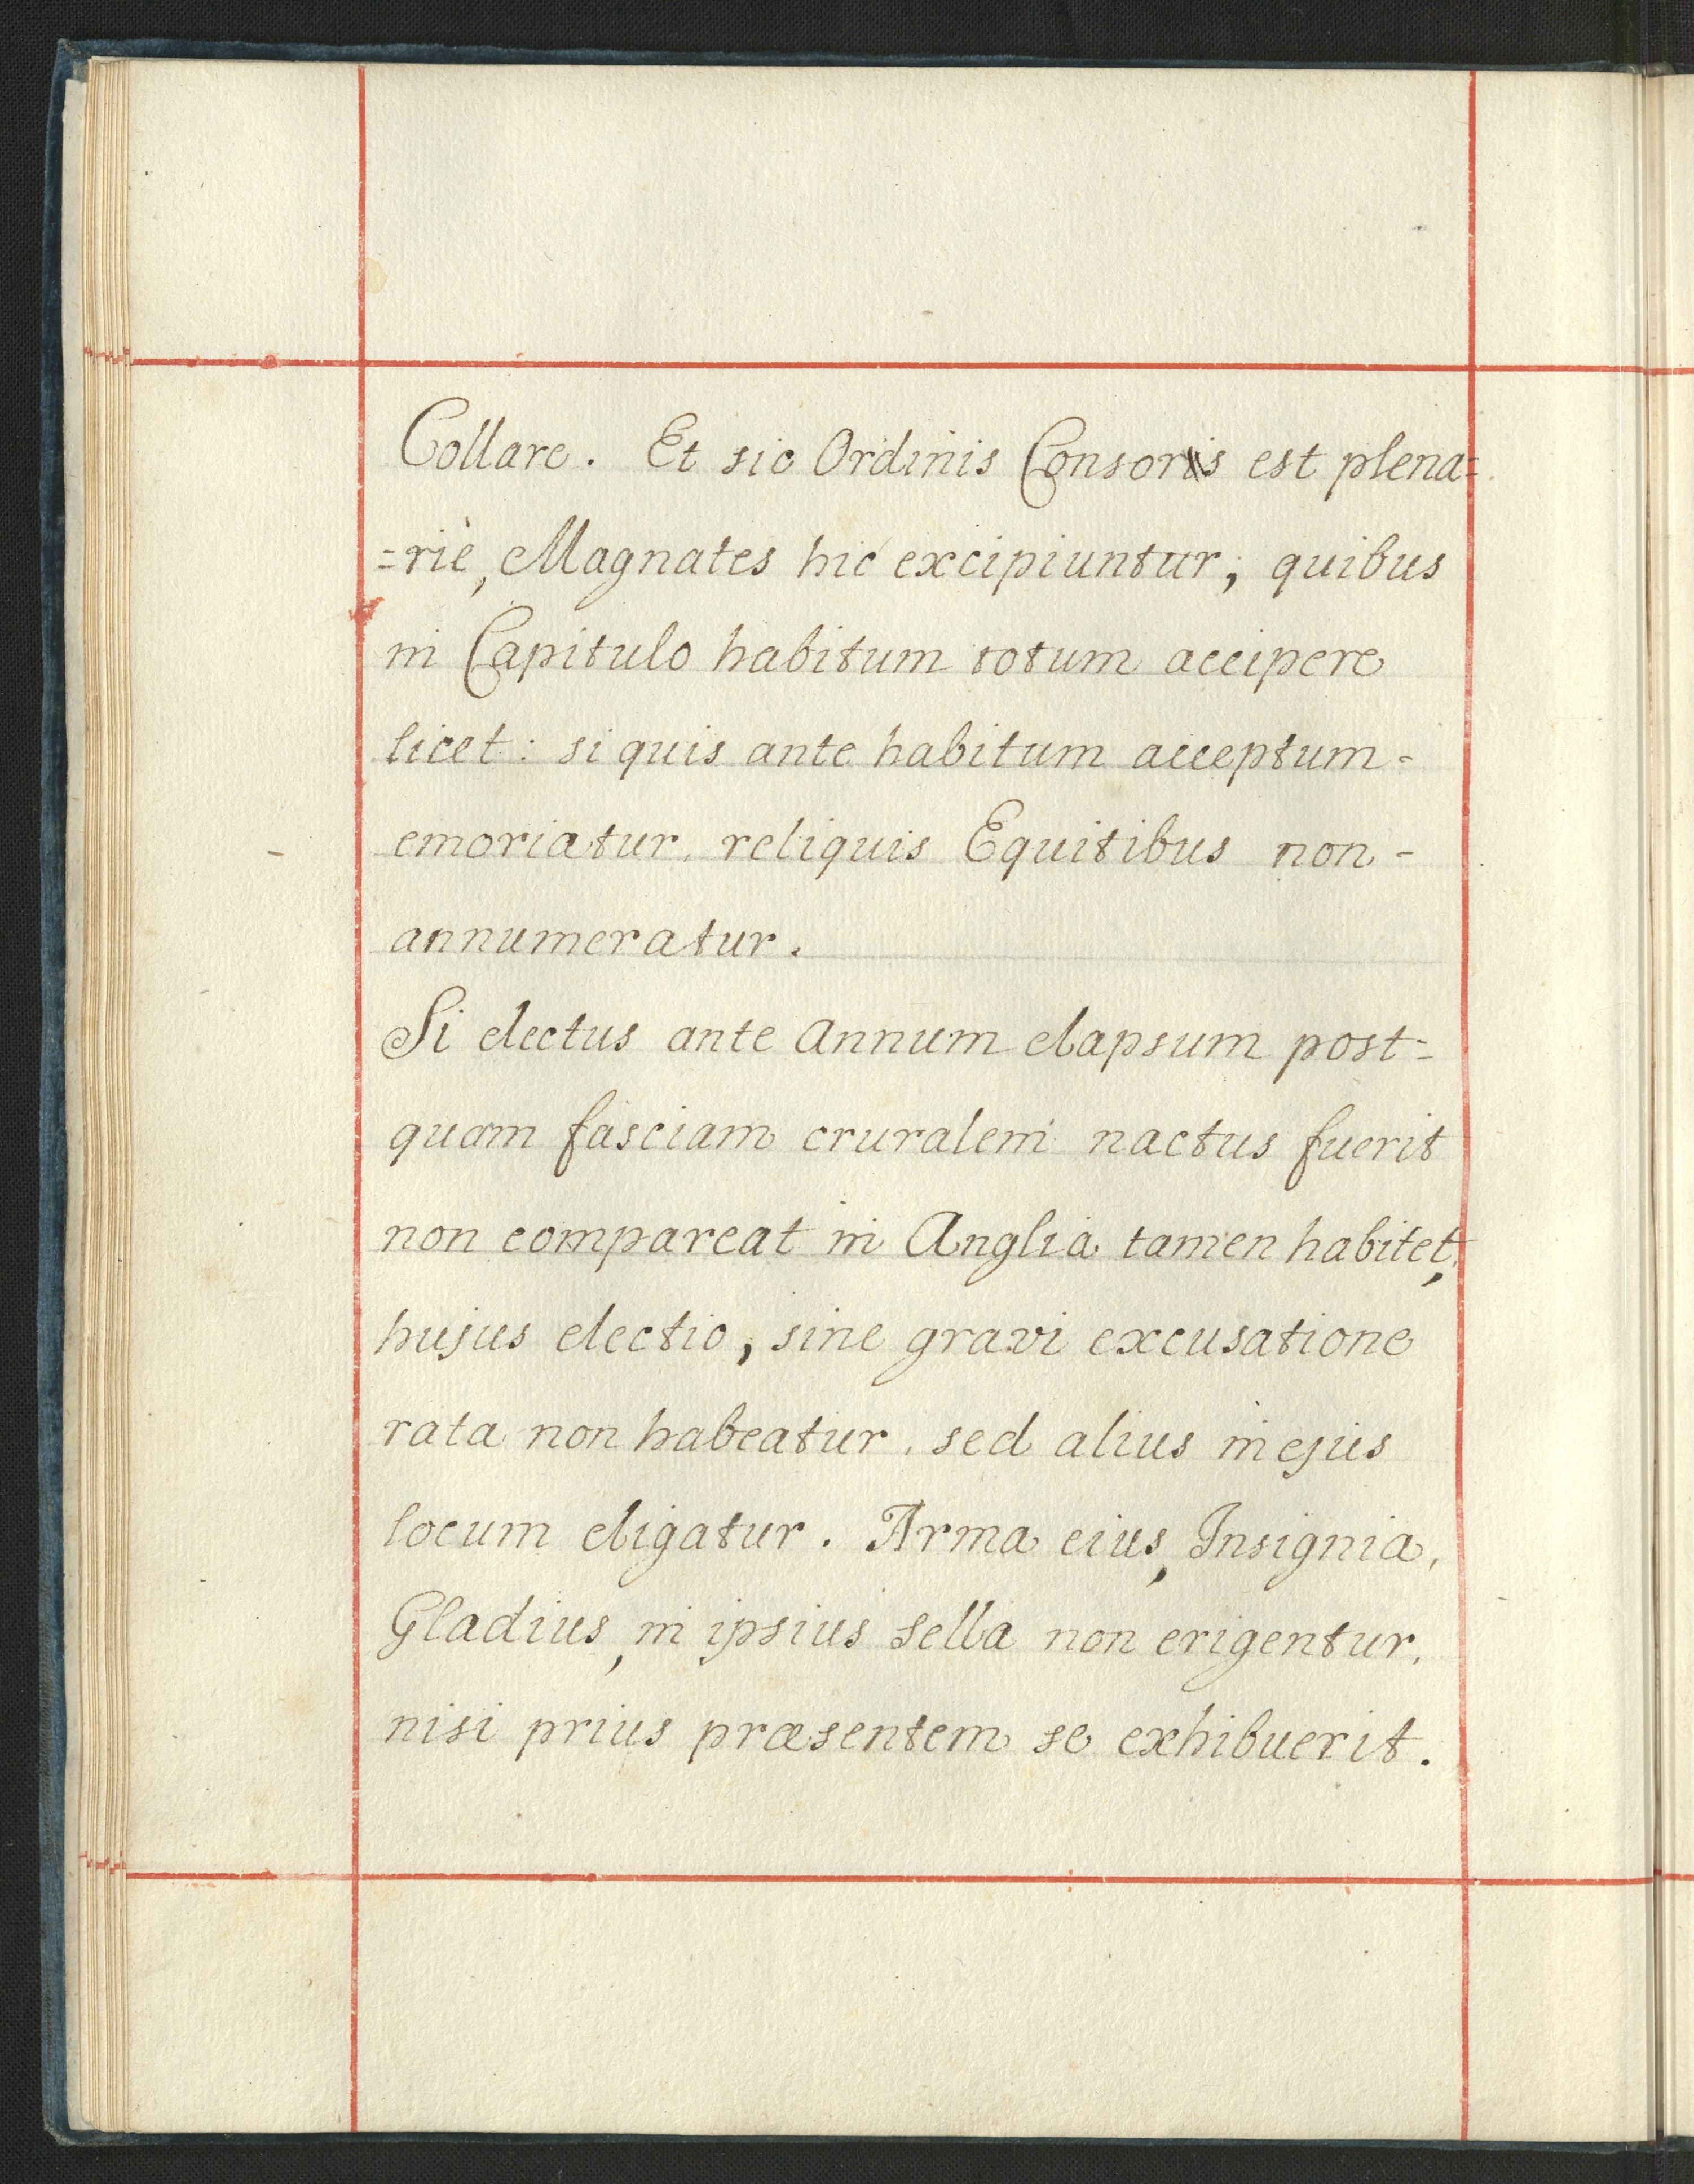 Collare. Et sic Ordinis Consors est plena=
=riè, Magnates hic excipiuntur; quibus
in Capitulo habitum totum accipere
licet: si quis ante habitum acceptum-
emoriatur, reliquis Equitibus non-
annumeratur.
Si electus ante annum elapsum post=
quam fasciam cruralem nactus fuerit
non compareat in Anglia tamen habitet,
hujus electio, sine gravi excusatione
rata non habeatur, sed alius in ejus
locum eligatur. Arma eius, Insignia,
Gladius, in ipsius sella non erigentur,
nisi prius præsentem se exhibuerit.